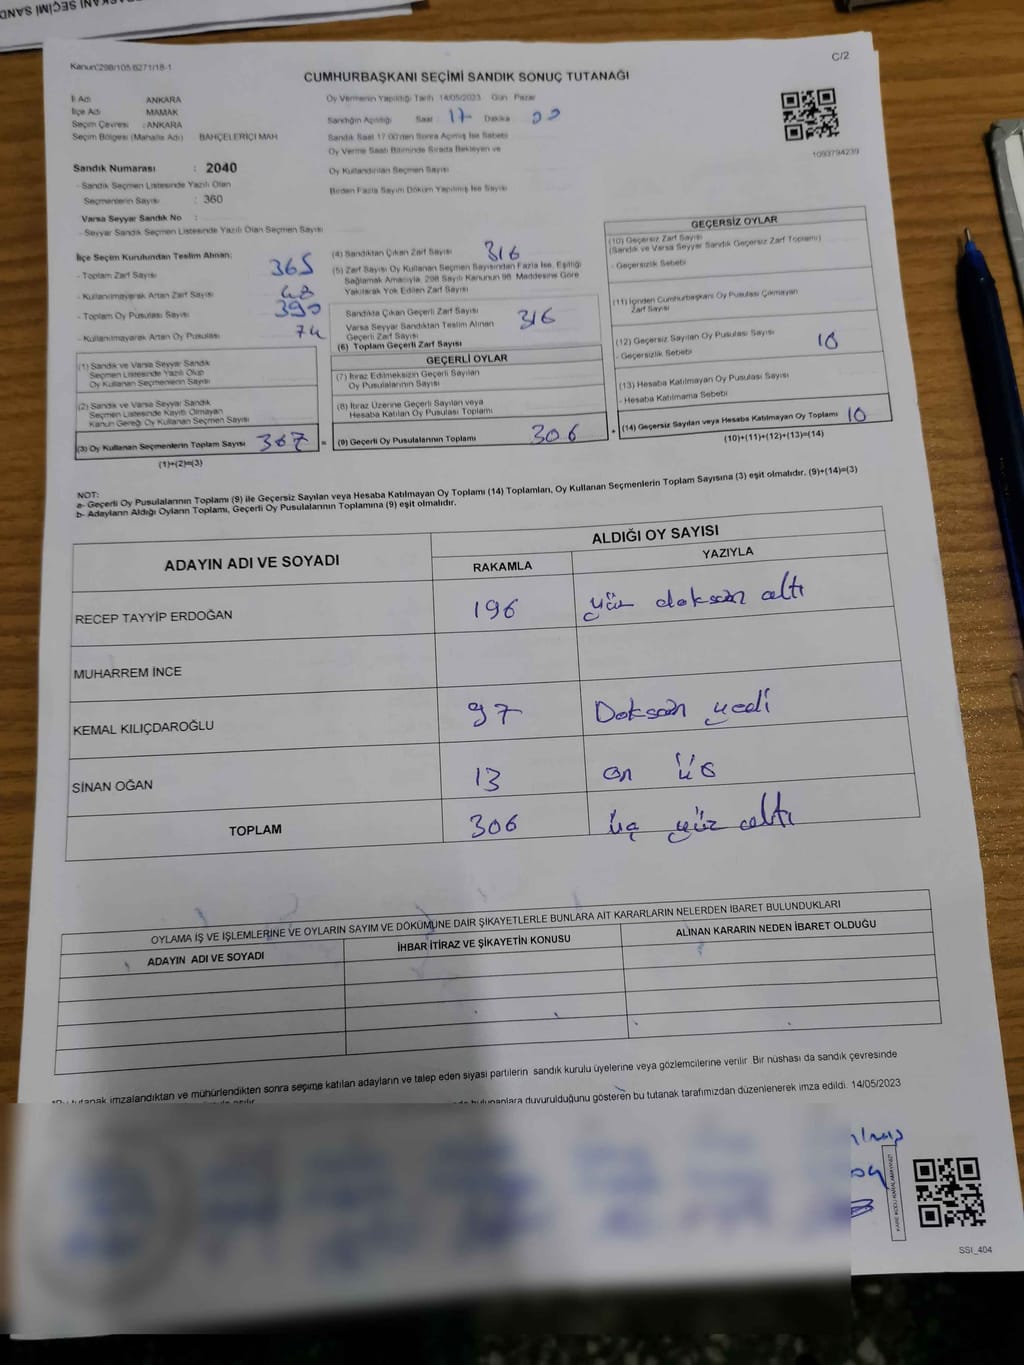 Kanun:298/105 6271/18-1
C/2
CUMHURBAŞKANI SEÇİMİ SANDIK SONUÇ TUTANAĞI
İl Adı ANKARA
İlçe Adı MAMAK
Seçim Çevresi : ANKARA
Seçim Bölgesi (Mahalle Adı) BAHÇELERİÇİ MAH
Sandık Numarası : 2040
- Sandık Seçmen Listesinde Yazılı Olan
Seçmenlerin Sayısı : 360
Varsa Seyyar Sandık No :
- Seyyar Sandık Seçmen Listesinde Yazılı Olan Seçmen Sayısı
Oy Vermenin Yapıldığı Tarih 14/05/2023 Gün Pazar
Sandığın Açıldığı Saat 17 Dakika 00
Sandık Saat 17:00'den Sonra Açılmış İse Sebebi
Oy Verme Saati Bitiminde Sırada Bekleyen ve
Oy Kullandırılan Seçmen Sayısı
Birden Fazla Sayım Döküm Yapılmış İse Sayısı
1093794239
İlçe Seçim Kurulundan Teslim Alınan:
- Toplam Zarf Sayısı 365
- Kullanılmayarak Artan Zarf Sayısı 48
- Toplam Oy Pusulası Sayısı 390
- Kullanılmayarak Artan Oy Pusulası 74
(1) Sandık ve Varsa Seyyar Sandık
Seçmen Listesinde Yazılı Olup
Oy Kullanan Seçmenlerin Sayısı
(2) Sandık ve Varsa Seyyar Sandık
Seçmen Listesinde Kayıtlı Olmayan
Kanun Gereği Oy Kullanan Seçmen Sayısı
(3) Oy Kullanan Seçmenlerin Toplam Sayısı
(1)+(2)=(3)
=
(4) Sandıktan Çıkan Zarf Sayısı 316
(5) Zarf Sayısı Oy Kullanan Seçmen Sayısından Fazla İse, Eşitliği
Sağlamak Amacıyla, 298 Sayılı Kanunun 98. Maddesine Göre
Yakılarak Yok Edilen Zarf Sayısı
Sandıkta Çıkan Geçerli Zarf Sayısı
Varsa Seyyar Sandıktan Teslim Alınan
Geçerli Zarf Sayısı
316
(6) Toplam Geçerli Zarf Sayısı
GEÇERLİ OYLAR
(7) İtiraz Edilmeksizin Geçerli Sayılan
Oy Pusulalarının Sayısı
(8) İtiraz Üzerine Geçerli Sayılan veya
Hesaba Katılan Oy Pusulası Toplamı
(9) Geçerli Oy Pusulalarının Toplamı 306
+
GEÇERSİZ OYLAR
(10) Geçersiz Zarf Sayısı
(Sandık ve Varsa Seyyar Sandık Geçersiz Zarf Toplamı)
- Geçersizlik Sebebi
(11) İçinden Cumhurbaşkanı Oy Pusulası Çıkmayan
Zarf Sayısı
(12) Geçersiz Sayılan Oy Pusulası Sayısı 10
- Geçersizlik Sebebi
(13) Hesaba Katılmayan Oy Pusulası Sayısı
- Hesaba Katılmama Sebebi
(14) Geçersiz Sayılan veya Hesaba Katılmayan Oy Toplamı 10
(10)+(11)+(12)+(13)=(14)
NOT:
a- Geçerli Oy Pusulalarının Toplamı (9) ile Geçersiz Sayılan veya Hesaba Katılmayan Oy Toplamı (14) Toplamları, Oy Kullanan Seçmenlerin Toplam Sayısına (3) eşit olmalıdır. (9)+(14)=(3)
b- Adayların Aldığı Oyların Toplamı, Geçerli Oy Pusulalarının Toplamına (9) eşit olmalıdır.
ADAYIN ADI VE SOYADI
ALDIĞI OY SAYISI
RAKAMLA YAZIYLA
RECEP TAYYİP ERDOĞAN 196 yüz doksan altı
MUHARREM İNCE
KEMAL KILIÇDAROĞLU 97 Doksan yedi
SİNAN OĞAN 13 on üç
TOPLAM 306 üç yüz altı
OYLAMA İŞ VE İŞLEMLERİNE VE OYLARIN SAYIM VE DÖKÜMÜNE DAİR ŞİKAYETLERLE BUNLARA AİT KARARLARIN NELERDEN İBARET BULUNDUKLARI
ADAYIN ADI VE SOYADI İHBAR İTİRAZ VE ŞİKAYETİN KONUSU ALINAN KARARIN NEDEN İBARET OLDUĞU
tutanak imzalandıktan ve mühürlendikten sonra seçime katılan adayların ve talep eden siyasi partilerin sandık kurulu üyelerine veya gözlemcilerine verilir Bir nüshası da sandık çevresinde
bulunanlara duyurulduğunu gösteren bu tutanak tarafımızdan düzenlenerek imza edildi. 14/05/2023
KARE KODU KARALAMAYINIZ!
SSI_404